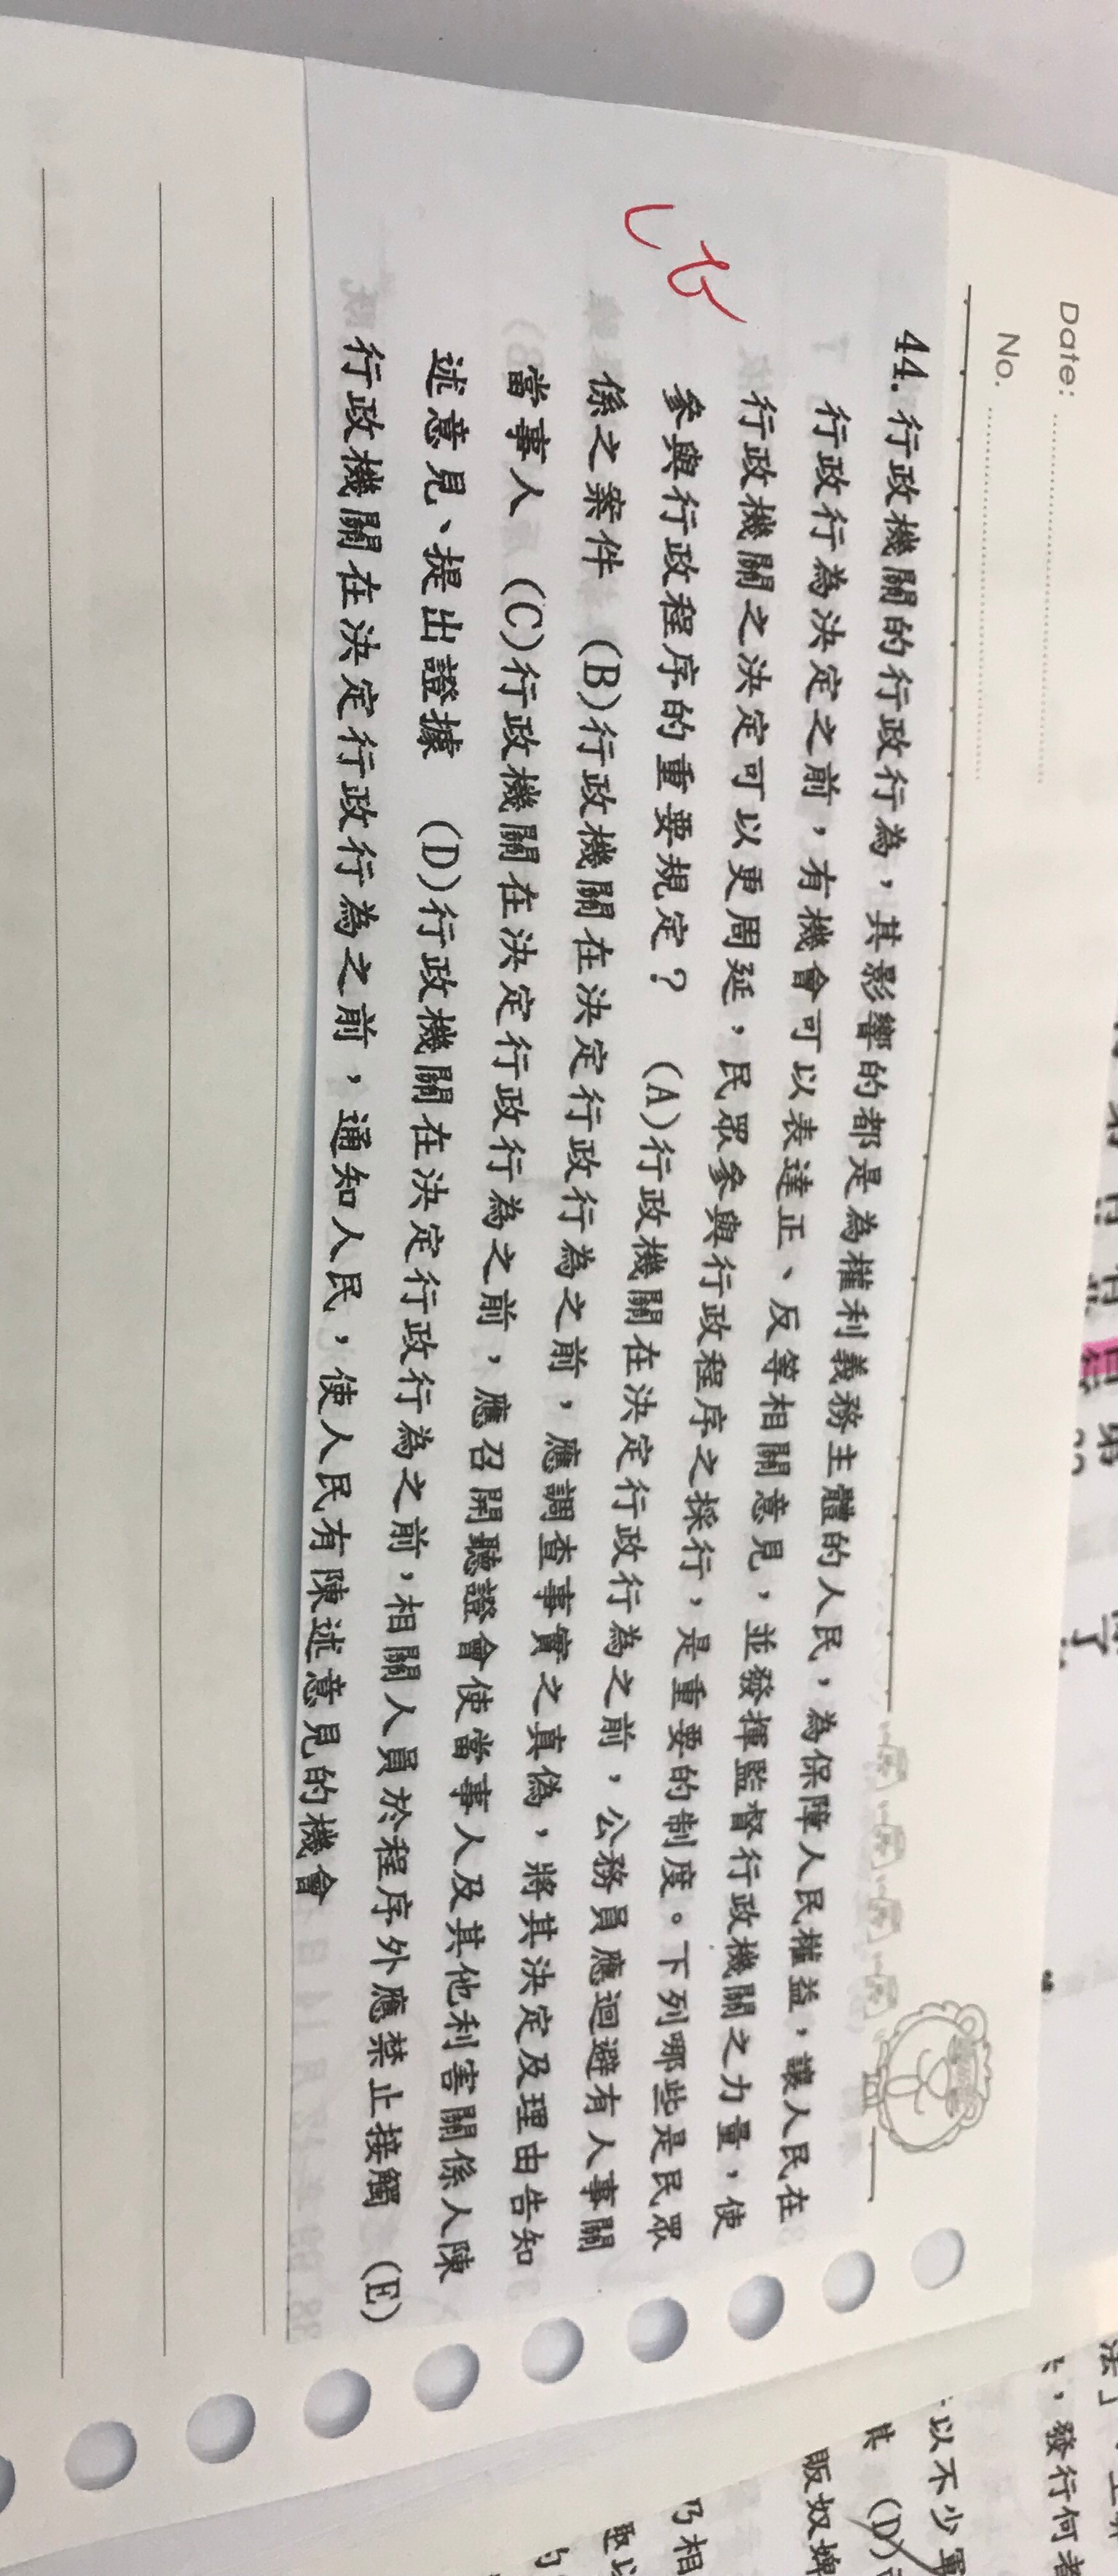 Date:
No.
44. 行政機關的行政行為，其影響的都是為權利義務主體的人民，為保障人民權益，讓人民在
行政行為決定之前，有機會可以表達正、反等相關意見，並發揮監督行政機關之力量，使
行政機關之決定可以更周延，民眾參與行政程序之採行，是重要的制度。下列哪些是民眾
參與行政程序的重要規定？ (A)行政機關在決定行政行為之前，公務員應迴避有人事關
係之案件 (B)行政機關在決定行政行為之前，應調查事實之真偽，將其決定及理由告知
當事人 (C)行政機關在決定行政行為之前，應召開聽證會使當事人及其他利害關係人陳
述意見、提出證據 (D)行政機關在決定行政行為之前，相關人員於程序外應禁止接觸 (E)
行政機關在決定行政行為之前，通知人民，使人民有陳述意見的機會
，發行何者
以不少軍
其 (D)
販奴婢
乃相